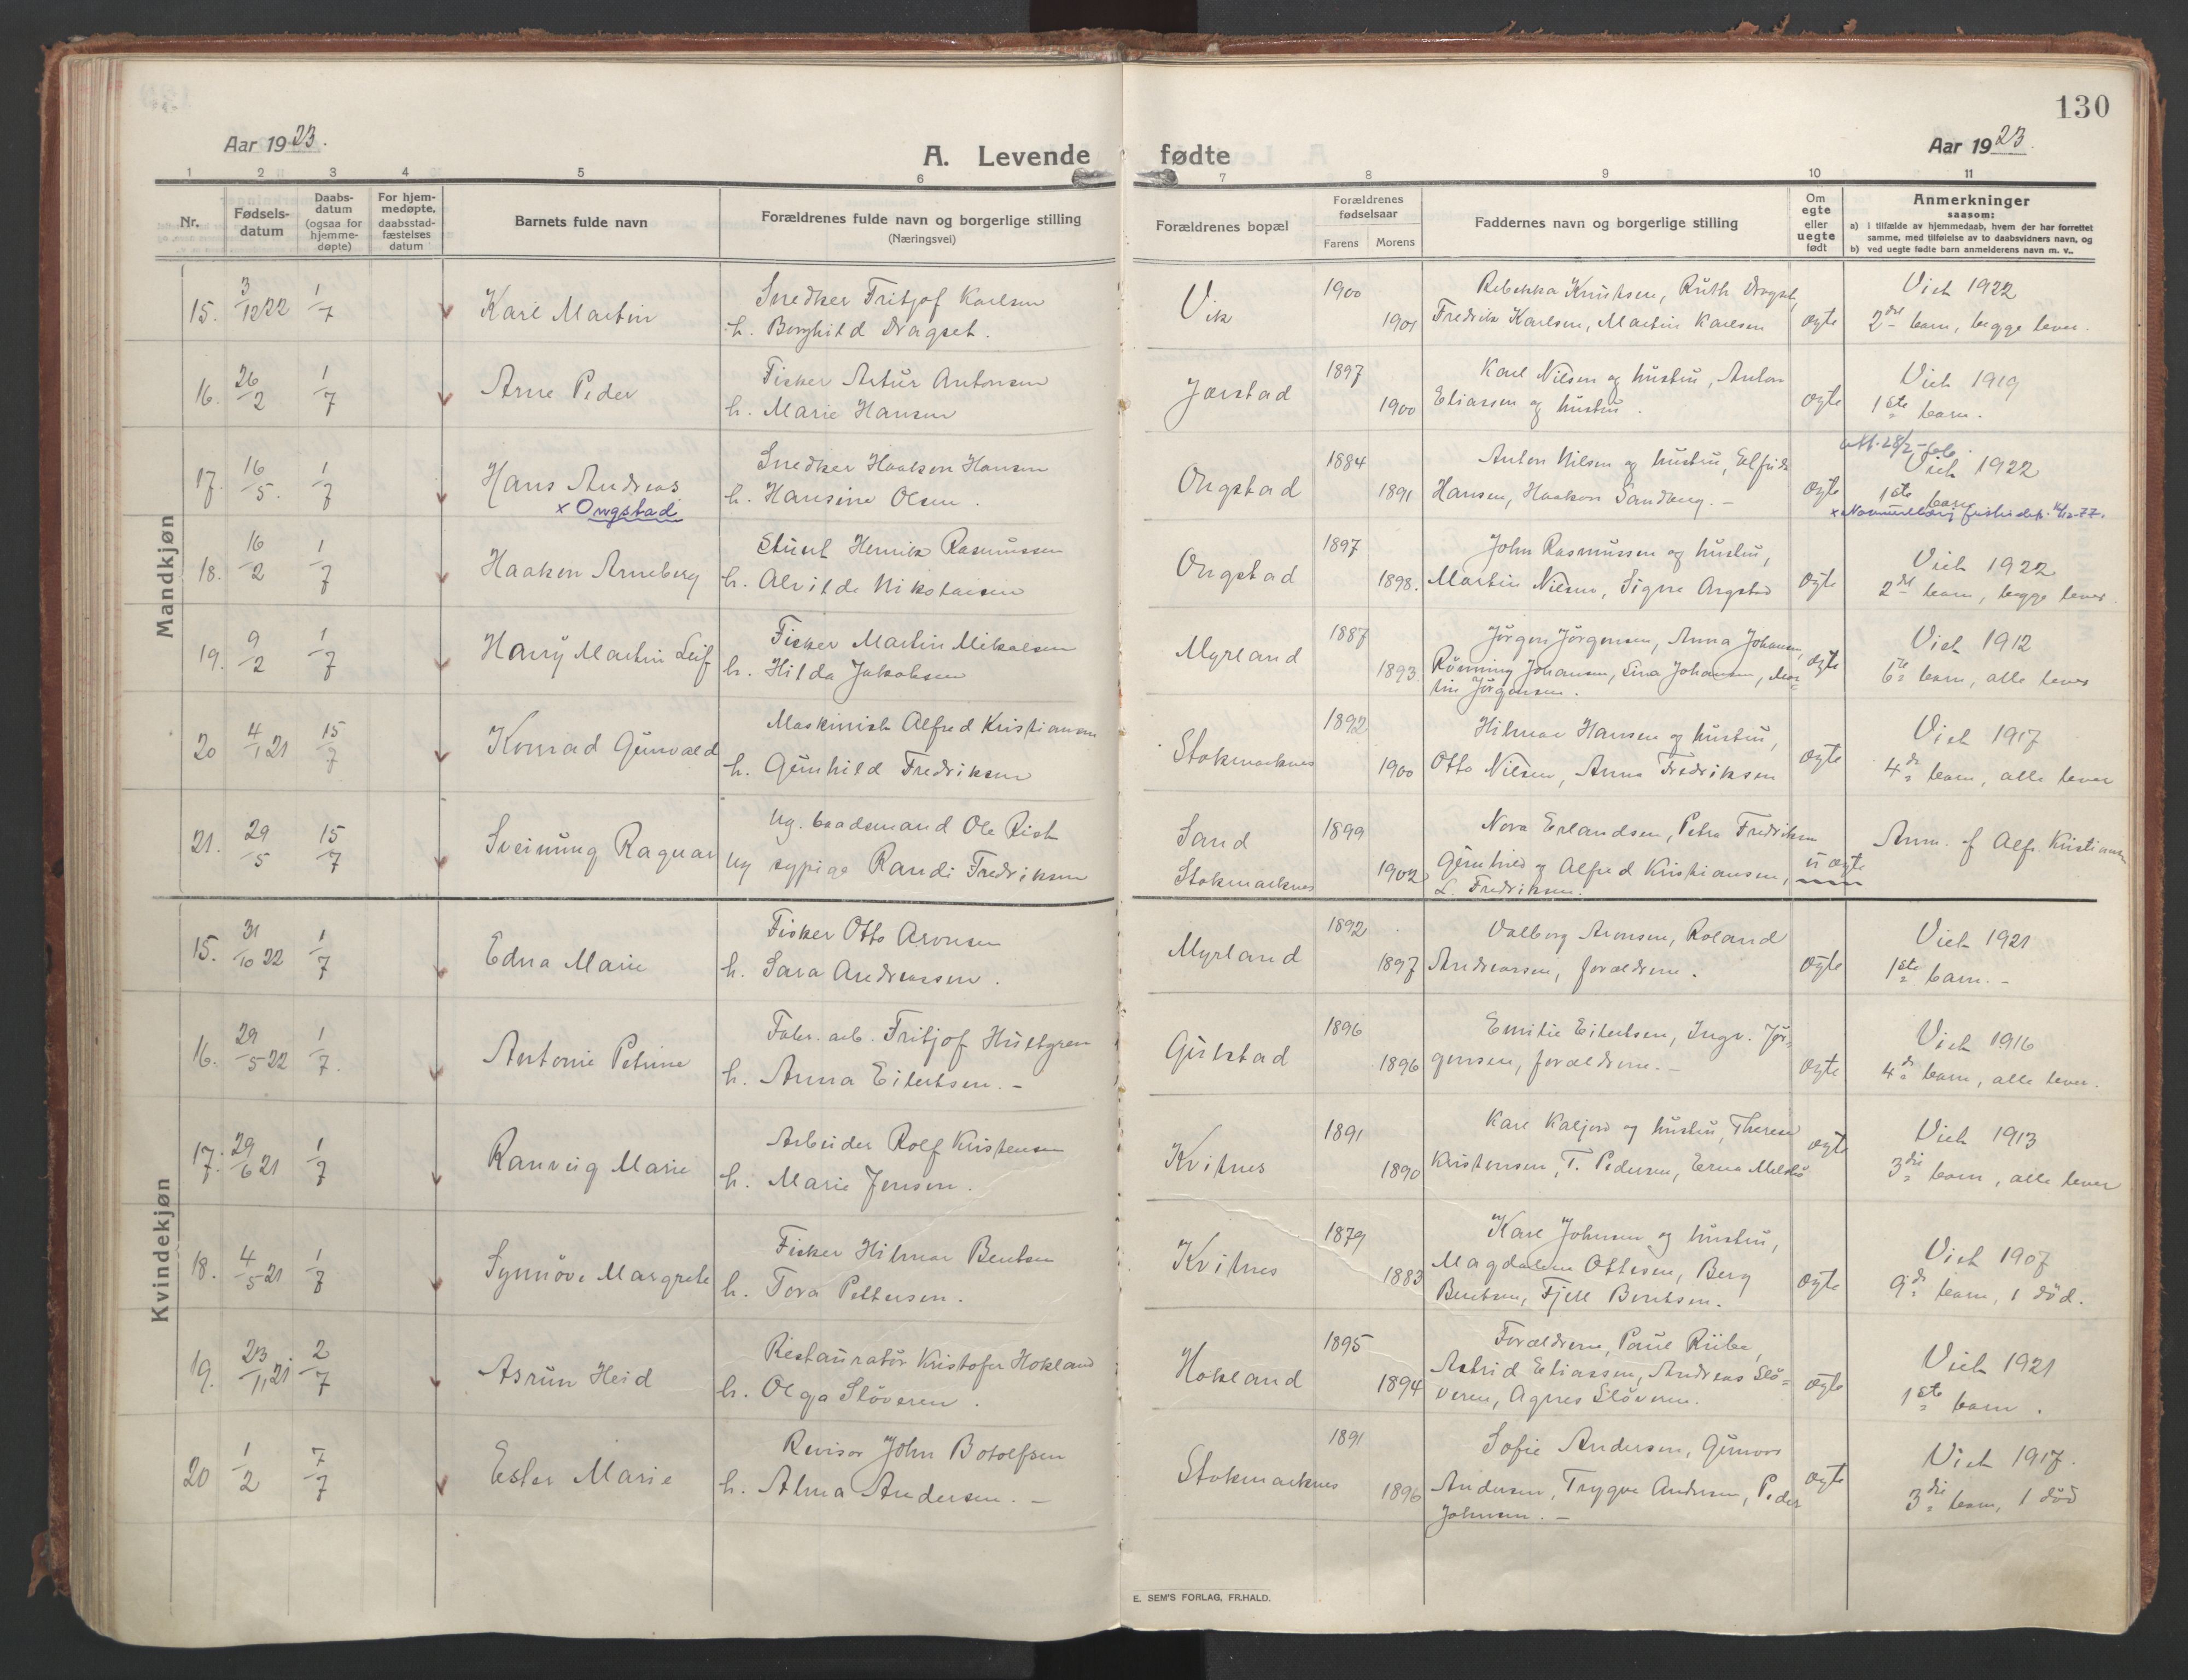 130
Aar 1923.
A. Levende fødte
Aar 1923.
1 2 3 4 5 6 7 8 9 10 11
Nr.
Fødsels-
datum
Daabs-
datum
(ogsaa for
hjemme-
døpte)
For hjem-
medøpte,
daabsstad-
fæstelses
datum
Barnets fulde navn
Forældrenes fulde navn og borgerlige stilling
(Næringsvei)
Forældrenes bopæl
Forældrenes
fødselsaar
Farens Morens
Faddernes navn og borgerlige stilling
Om
egte
eller
uegte
født
Anmerkninger
saasom:
a) i tilfælde av hjemmedaab, hvem der har forrettet
samme, med tilføielse av to daabsvidners navn, og
b) ved uegte fødte barn anmelderens navn m. v..
Mandkjøn
15. 3/12 22 1/7 Karl Martin
Snedker Fritjof Karlsen
h. Borghild Dragset.
Vik 1900 1901
Rebekka Knutsen, Ruth Dragset,
Fredrik Karlsen, Martin Karlsen
ægte
Viet 1922
2det barn, begge lever.
16. 26/2 1/7 Arne Peder
Fisker Artur Antonsen
h. Marie Hansen
Jørstad 1897 1900
Karl Nilsen og hustru, Anton
Eliassen og hustru.
ægte
Viet 1919
1ste barn.
17. 16/5. 1/7 Hans Andreas
x Ongstad
Snedker Haakon Hansen
h. Hansine Olsen.
Ongstad 1884 1891
Anton Nilsen og hustru, Elfrida
Hansen, Haakon Sandberg. -
ægte
Viet 1922
1ste barn
18. 16/2 1/7 Haakon Arneberg
Stuert Henrik Rasmussen
h. Alvilde Nikolaisen
Ongstad 1897 1898.
John Rasmussen og hustru,
Martin Nilsen, Signe Ongstad
ægte
Viet 1922
2det barn, begge lever.
19. 9/2 1/7 Harry Martin Leif
Fisker Martin Mikalsen
h. Hilda Jakobsen
Myrland 1887 1893.
Jørgen Jørgensen, Anna Johansen,
Rønning Johansen, Lina Johansen, Mar-
tin Jørgensen.
ægte
Viet 1912
6te barn, alle lever
20 4/1 21 15/7 Konrad Gunvald
Maskinist Alfred Kristiansen
h. Gunhild Fredriksen
Stokmarknes 1892 1900
Hilmar Hansen og hustru,
Otto Nilsen, Anna Fredriksen
ægte
Viet 1917
4de barn, alle lever
21. 29/5 15/7 Sveinung Ragnar
Ug. baadsmand Ole Rist
Ug sypige Randi Fredriksen
Sand
Stokmarknes 1899 1902
Nora Erlandsen, Petra Fredriksen
Gunhild og Alfred Kristiansen,
L. Fredriksen.
uægte
Anm. f Alf. Kristiansen
Kvindekjøn
15. 31/10 22 1/7 Edna Marie
Fisker Otto Aronsen
h. Sara Andreassen.
Myrland 1892 1897
Valborg Aronsen, Roland
Andreassen, forældrene.
ægte
Viet 1921
1ste barn. -
16. 29/5 22 1/7. Antonie Petrine
Fabr. arb. Fritjof Hultgren
h. Anna Eilertsen. -
Gulstad 1896 1896
Emilie Eilertsen, Ingv. Jør-
gensen, forældrene. -
ægte
Viet 1916
4de barn, alle lever.
17. 29/6 21 1/7 Ranveig Marie
Arbeider Rolf Kristensen
h. Marie Jensen.
Kvitnes 1891 1890
Karl Kaljord og hustru, Therese
Kristensen, T. Pedersen, Erna
ægte
Viet 1913
3die barn, alle lever
18. 4/5 21 1/7 Synnøve Margrete
Fisker Hilmar Bentsen
h. Tora Pettersen.
Kvitnes 1879 1883
Karl Johnsen og hustru,
Magdalene Ottesen, Berg
Bentsen, Fjell Bentsen.
ægte
Viet 1907
9de barn, 1 død.
19. 23/11 21 2/7 Asrun Heid
Restauratør Kristofer Hokland
h. Olga Sløveren.
Hokland 1895 1894
Forældrene, Paul Riibe,
Astrid Eliassen, Andreas Slø-
veren, Agnes Sløveren.
ægte
Viet 1921
1ste barn.
20 1/2 7/7 Ester Marie
Revisor John Botolfsen
h. Alma Andersen. -
Stokmarknes 1891 1896
Sofie Andersen, Gunvor
Andersen, Trygve Andersen, Peder
Johnsen. -
ægte
Viet 1917.
3die barn, 1 død
E. SEM'S FORLAG, FR.HALD.